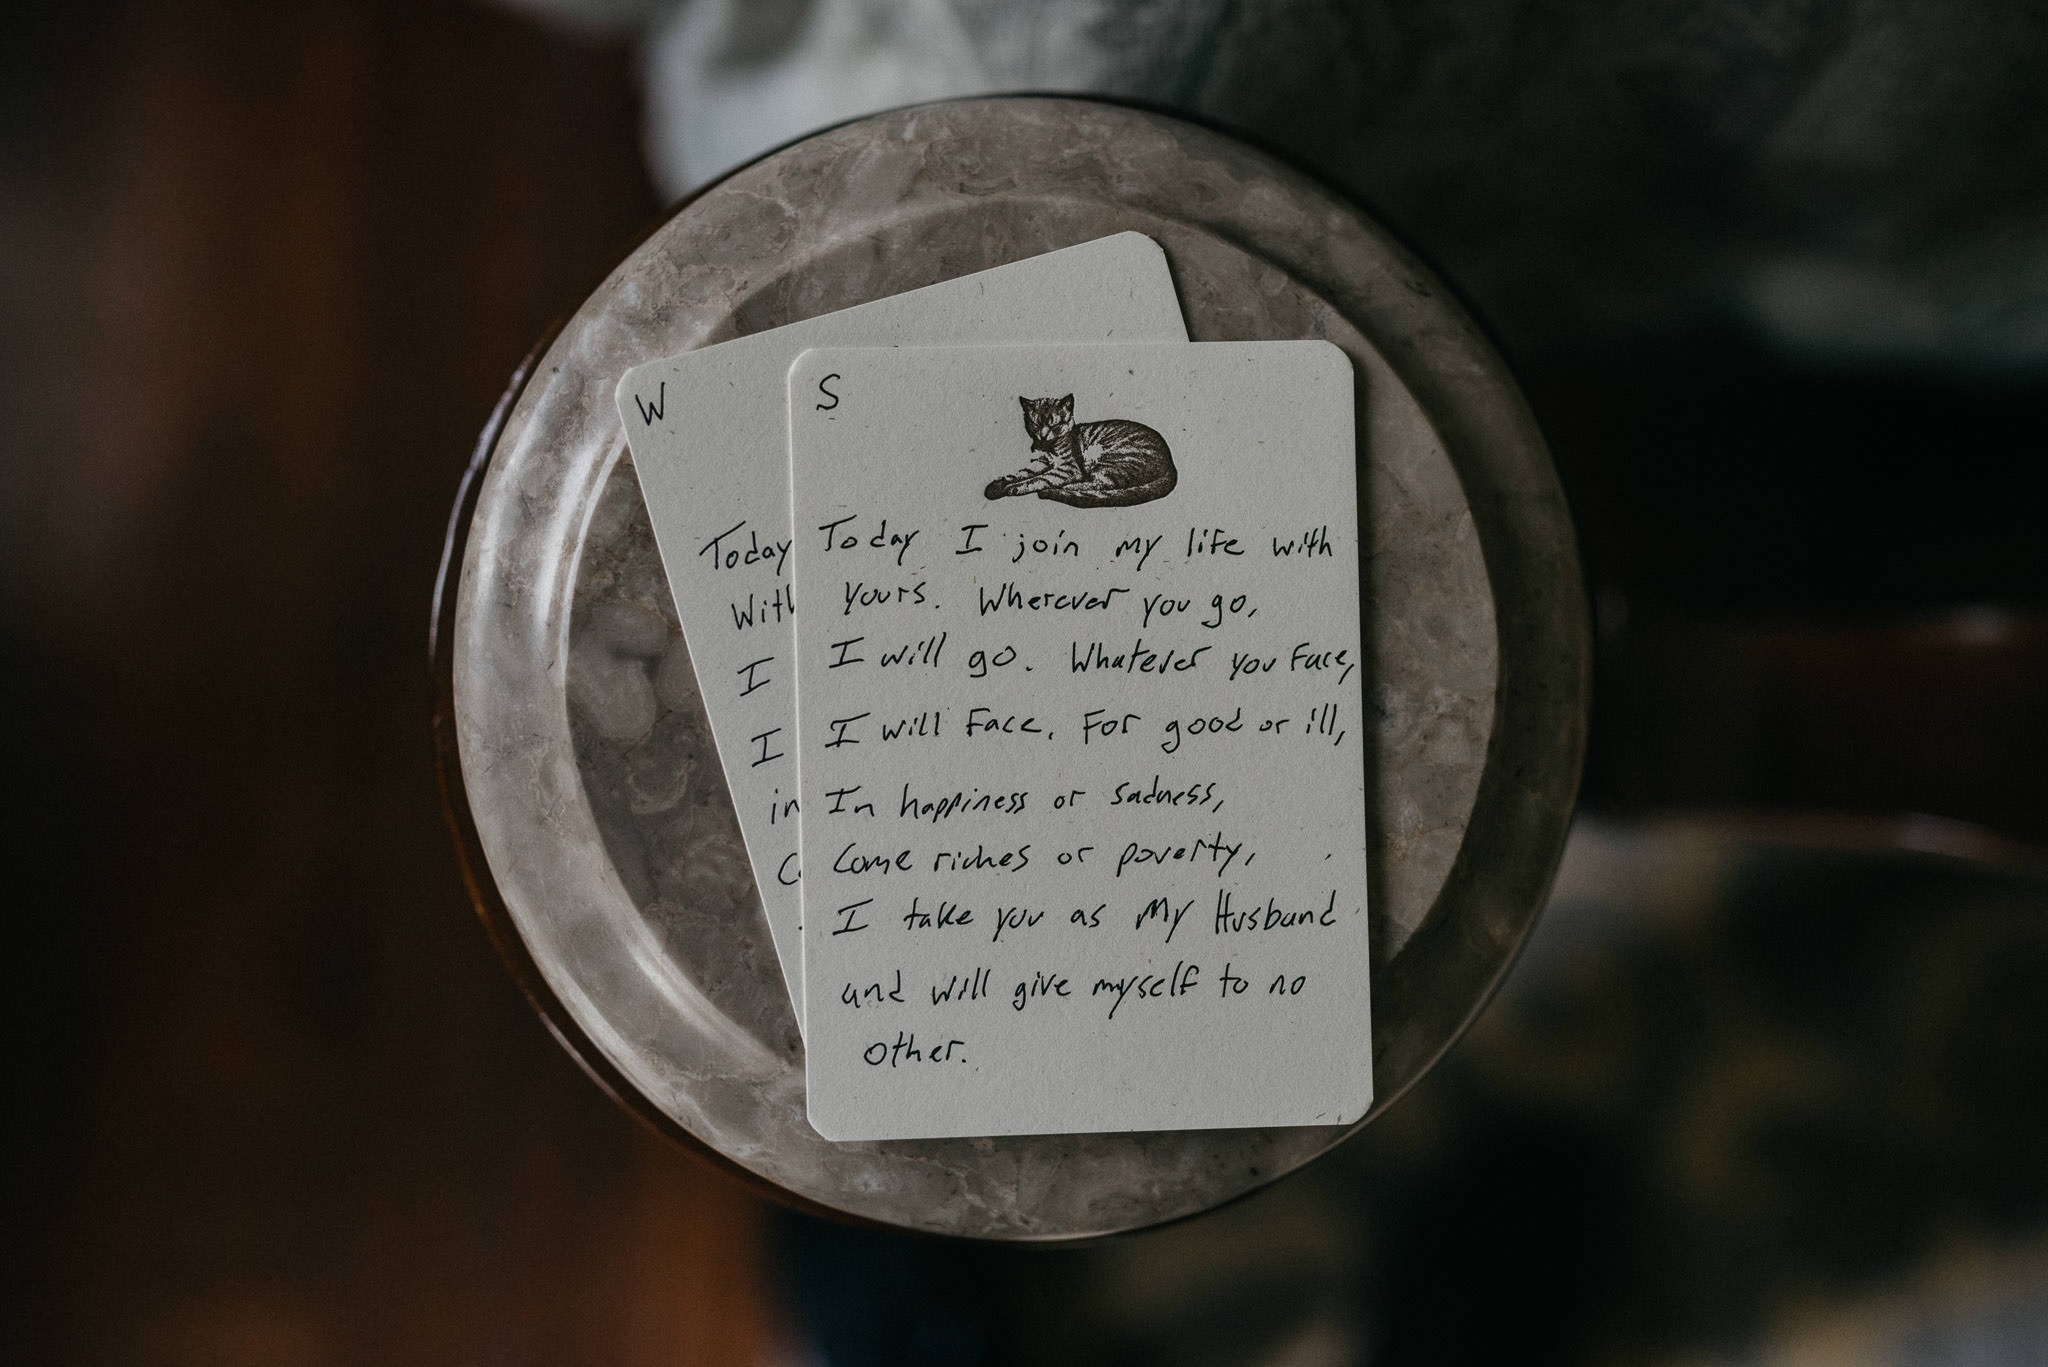 W
Today
With
I
I
in
S
Today I join my life with
yours. Wherever you go,
I will go. Whatever you face,
I will face. For good or ill,
In happiness or sadness,
Come riches or poverty,
I take you as My Husband
and will give myself to no
other.